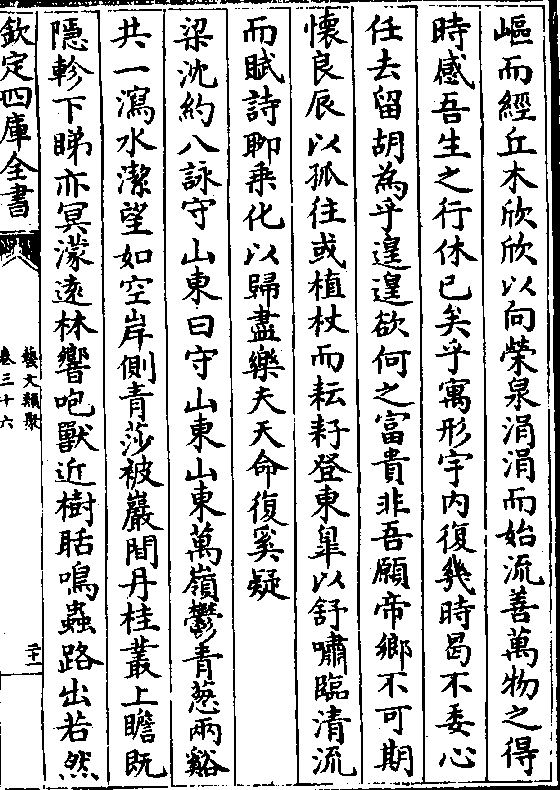 嶇而經丘木欣欣以向榮泉涓涓而始流善萬物之得
時感吾生之行休已矣乎寓形宇內復幾時曷不委心
任去留胡為乎遑遑欲何之富貴非吾願帝鄉不可期
懷良辰以孤往或植杖而耘耔登東臯以舒嘯臨清流
而賦詩聊乗化以歸盡樂夫天命復奚疑
梁沈約八詠守山東曰守山東山東萬嶺鬱青葱兩谿
共一瀉水潔望如空岸側青莎被巖間丹桂叢上瞻既
隱軫下睇亦冥濛遠林響咆獸近樹聒鳴蟲路出若然
欽定四庫全書
藝文類聚
卷三十六
二十一